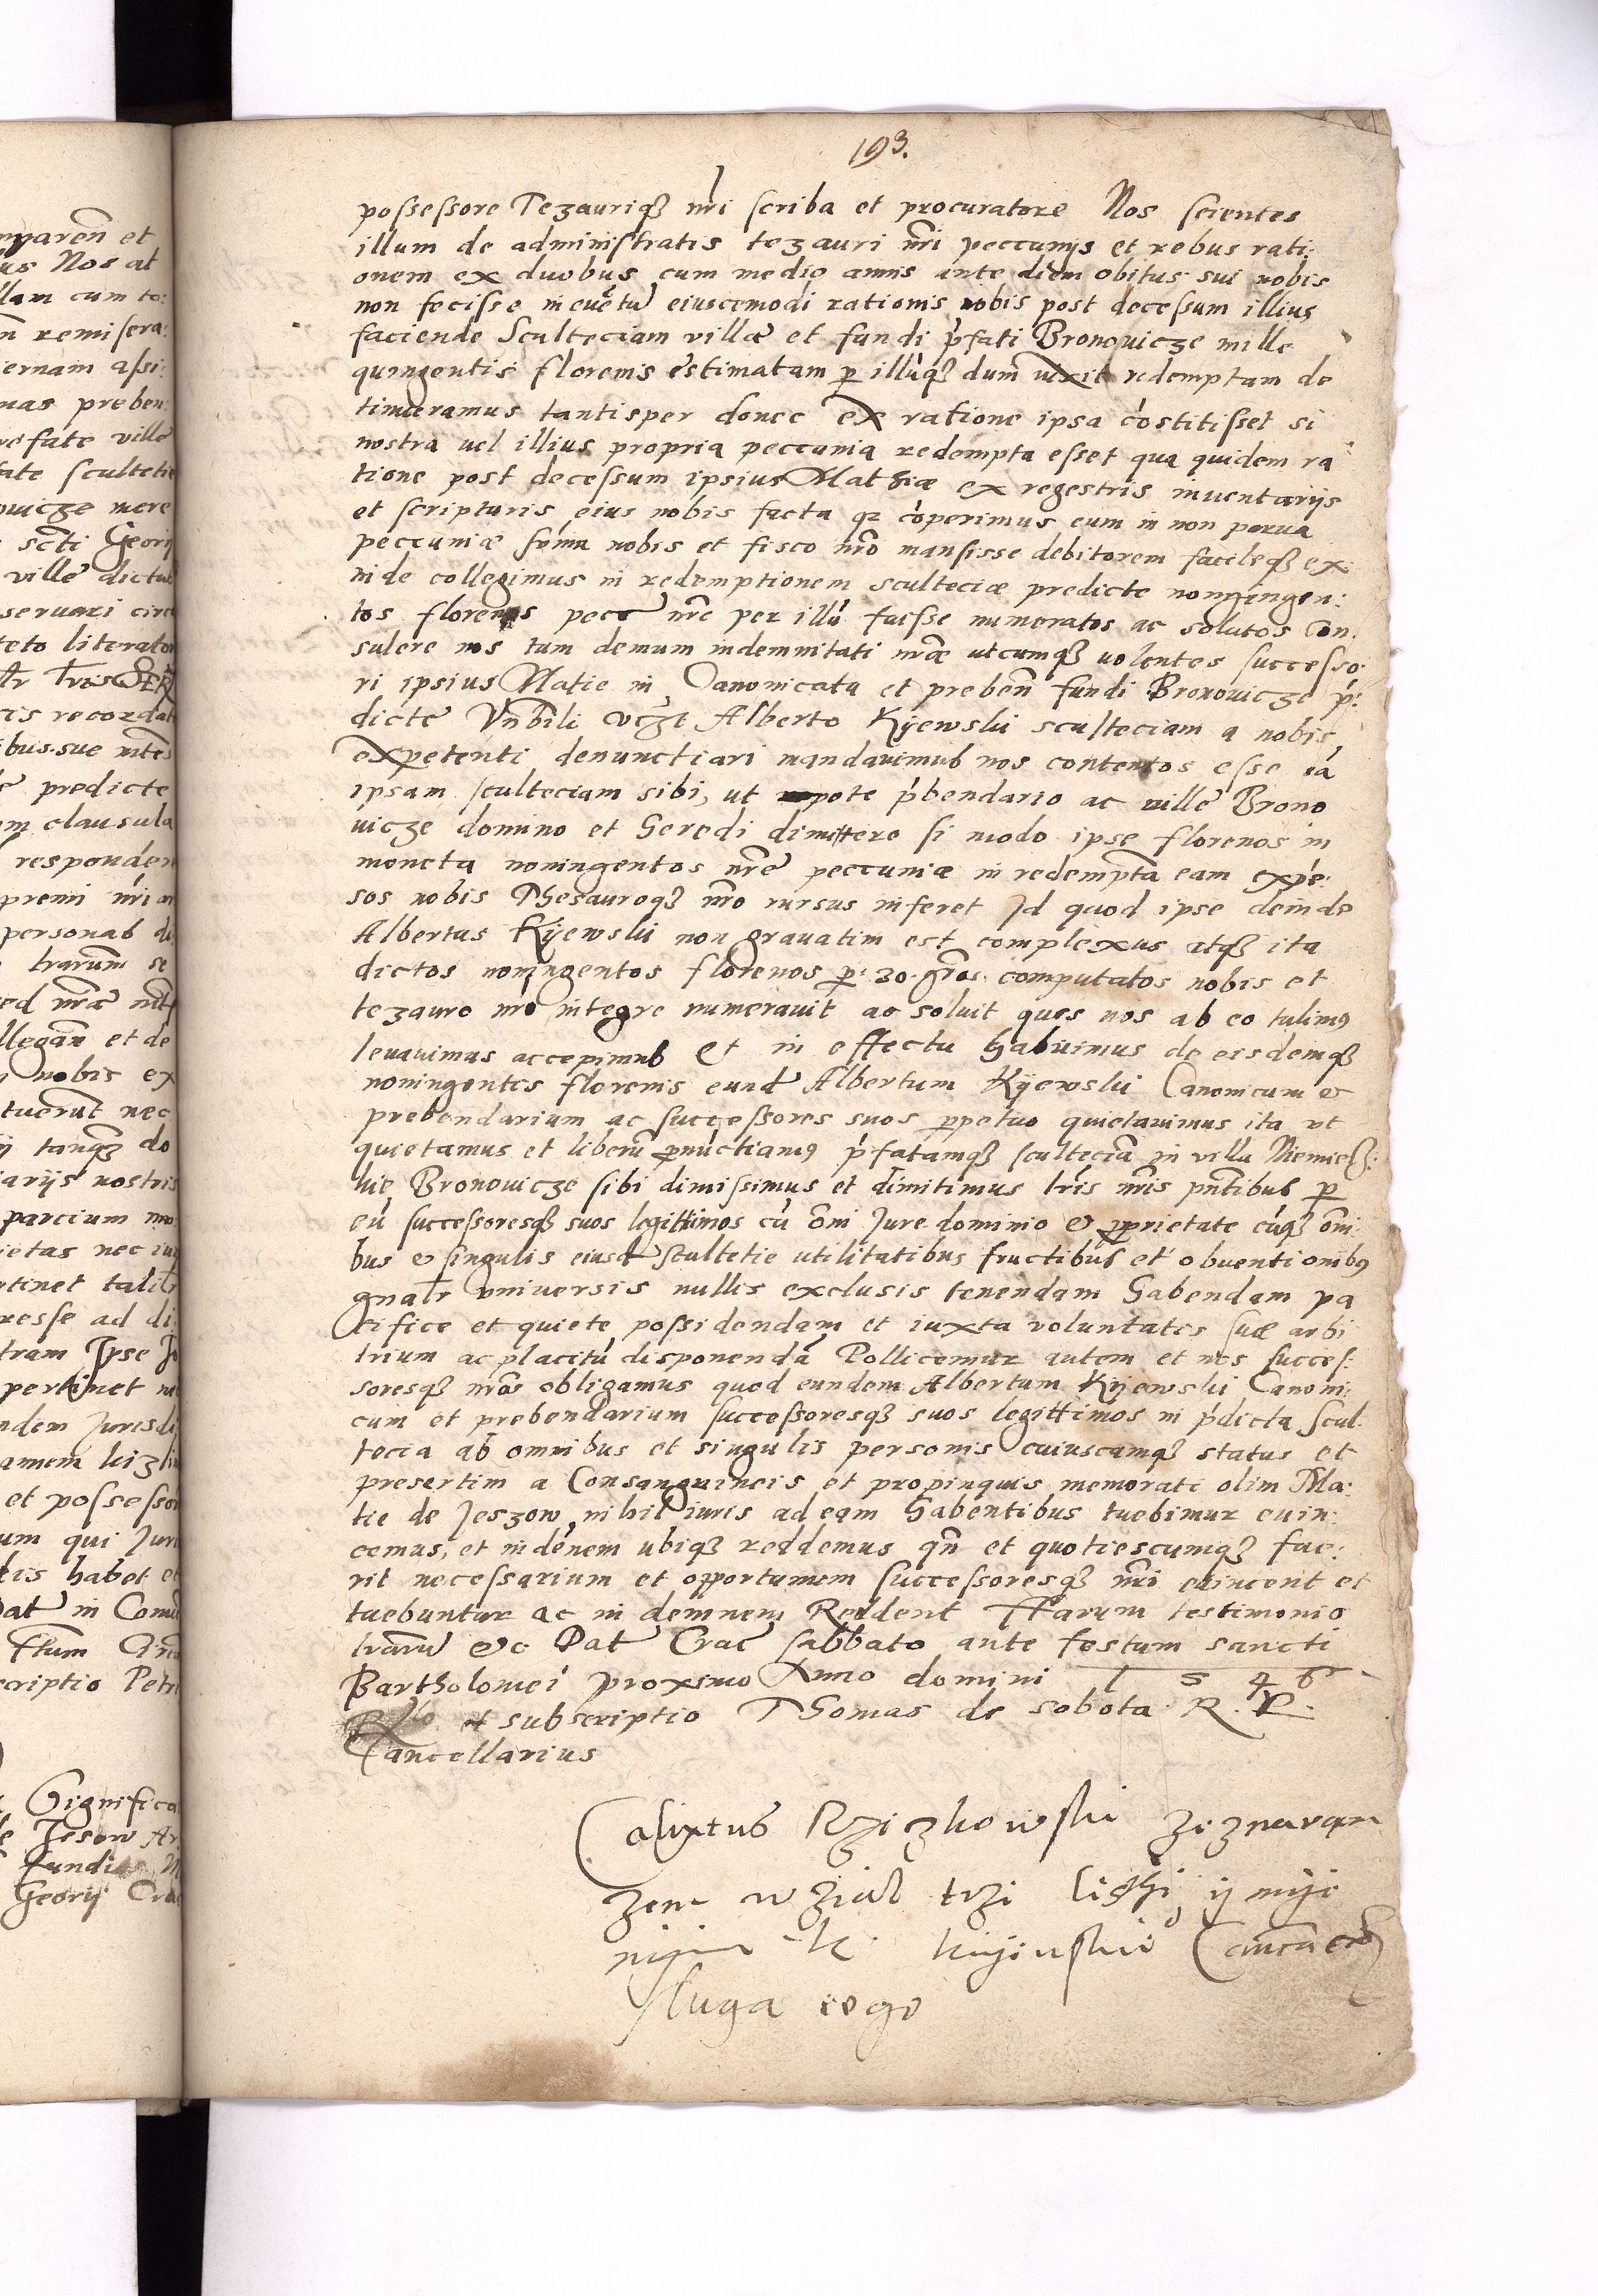 193.
possessore Tezauriq3 nri scriba et procuratore Nos scientes
illum de administratis tezauri nri peccunijs et rebus rati:
onem ex duobus cum medio annis ante diem obitus sui nobis
non fecisse in euētu eiuscemodi rationis nobis post decessum illius
faciende Sculteciam villæ et fundi p̃fati Bronouicze mille
quingentis florenis estimatam p illūq3 dum uixit redemptam de
tinueramus tantisper donec ex ratione ipsa cōstitisset si
nostra uel illius propria peccunia redempta esset qua quidem ra
tione post decessum ipsius Mathiæ ex regestris inuentarijs
et scripturis eius nobis facta q2 cōperimus eum in non parua
peccuniæ sūma nobis et fisco nrō mansisse debitorem facileq3 ex
inde collegimus in redemptionem sculteciæ predicte nonningen:
tos florenos pecc nrē per illū fuisse numeratos ac solutos Con.
sulere nos tum demum indemnitati nrāe utcumq3 uolentes successo
ri ipsius Matie in Canonicatu et prebeñ fundi Bronouicze p̃:
dicte Vnbili Alberto Kijewski sculteciam a nobis
expetenti denunctiari mandauimus nos contentos esse eā
ipsam sculteciam sibi, ut pote p̃bendario ac uille Brono
uicze domino et heredi dimittere si modo ipse florenos in
moneta noningentos nrē peccuniæ in redemptā eam expē:
sos nobis Thesauroq3 nrō rursus inferet Id quod ipse deinde
Albertus Kijewski non grauatim est complexus atq3 ita
dictos noningentos florenos p 30 gros computatos nobis et
tezauro nrō integre numerauit ac soluit quos nos ab eo tulimus
leuauimus accepimus Et in effectu habuimus de eisdemq3
noningentis florenis eund Albertum Kijewski Canonicum &
prebendarium ac successores suos ppetuo quietauimus ita ut
quietamus et liberū pnūctiamus p̃fatamq3 sculteciā in villa Niemiesz:
kie Bronouicze sibi dimissimus et dimitimus lris nris pntibus p
eū successoresq3 suos legittimos cū ōni Jure dominio & pprietate eūq3 ōni
bus & singulis eiusd scultetie utilitatibus fructibus et obuentionibus
gnalr vniuersis nullis exclusis tenendam habendam pa
cifice et quiete possidendam et iuxta voluntatis suæ arbi
trium ac placitū disponendā Pollicemur autem et nos succes:
soresq3 nrōs obligamus quod eundem Albertum Kijewski Canoni:
cum et prebendarium successoresq3 suos legittimos in p̃dicta scul
tecia ab omnibus et singulis personis cuiuscumq3 status et
presertim a Consanguineis et propinquis memorati olim Ma:
tie de Jeszow nihil iuris ad eam habentibus tuebimur euin:
cemus, et indēnem ubiq3 reddemus qn̄ et quotiescumq3 fue:
rit necessarium et opportunum successoresq3 nri euincent et
tuebuntur ac in demnem Reddent Harum testimonio
lrarū &c Dat Crac sabbato ante festum sancti
Bartholomei proximo Anno domini 1 5 4 6
et subscriptio Thomas de sobota R. P.
Cancellarius
Calixtus zeznavam
zem wzial trzi listhi
Kijewskie
sluga iego